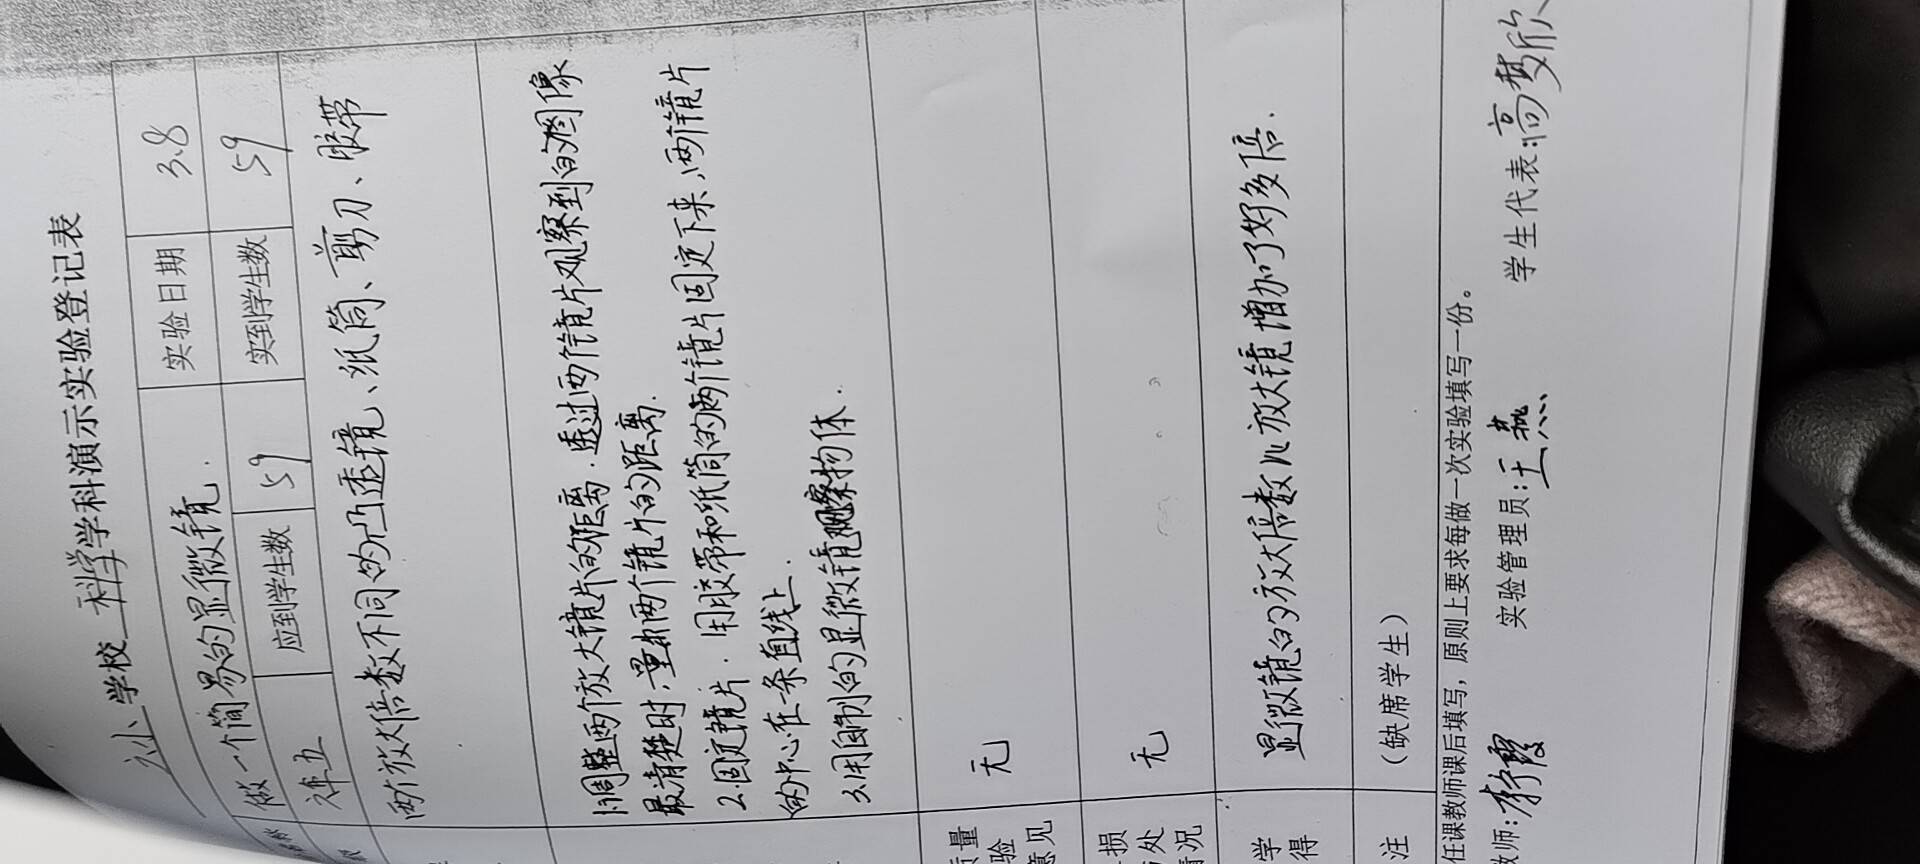 六小 学校 科学 学科演示实验登记表
做一个简易的显微镜. 实验日期 3.8
六年五 应到学生数 59 实到学生数 59
两个放大倍数不同的凸透镜、纸筒、剪刀、胶带
1.调整两个放大镜片的距离.透过两个镜片观察到的图像
最清楚时,量两个镜片的距离.
2.固定镜片.用胶带和纸筒的两个镜片固定下来,两个镜片
的中心在一条直线上.
3.用自制的显微镜观察物体.
质量
验
意见 无
损
处
情况 无
学
得 显微镜的放大倍数比放大镜增加了好多倍.
注 (缺席学生)
任课教师课后填写，原则上要求每做一次实验填写一份。
教师:李霞 实验管理员:王燕 学生代表:高梦欣